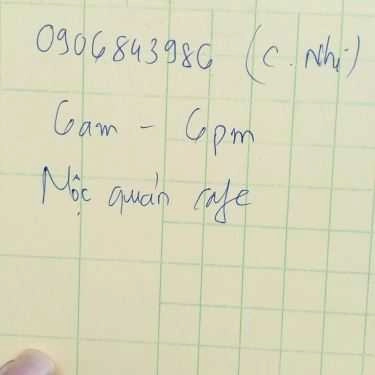 0906843986 (C. Nhi)
6am - 6pm
Mộc quán cafe